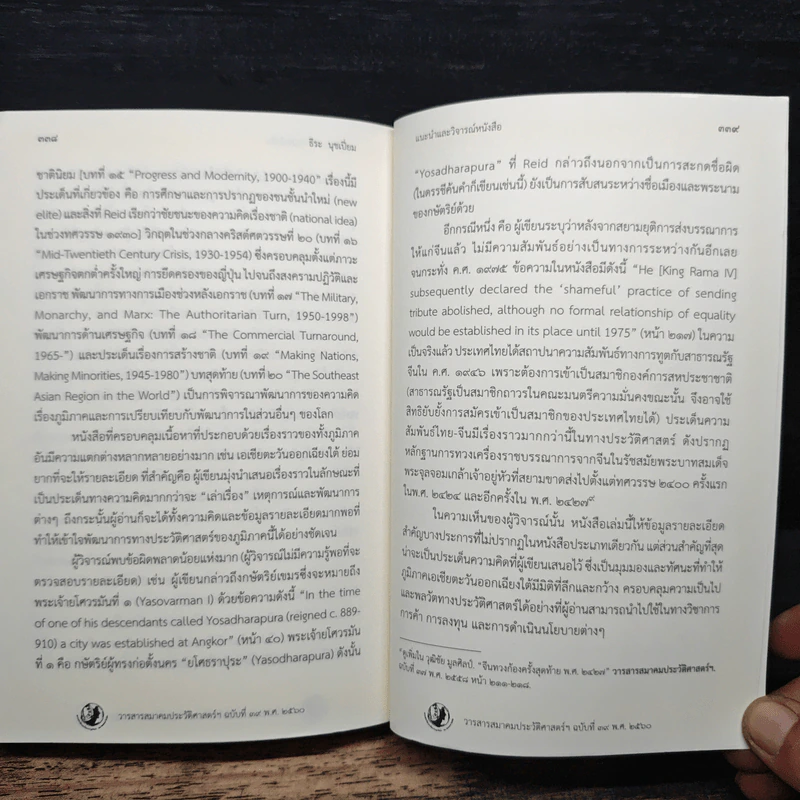 ๓๓๘
ธีระ นุชเปี่ยม
ชาตินิยม [บทที่ ๑๕ “Progress and Modernity, 1900-1940” เรื่องนี้มี
ประเด็นที่เกี่ยวข้อง คือ การศึกษาและการปรากฏของชนชั้นนำใหม่ (new
elite) และสิ่งที่ Reid เรียกว่าชัยชนะของความคิดเรื่องชาติ (national idea)
ในช่วงทศวรรษ ๑๙๓๐] วิกฤตในช่วงกลางคริสต์ศตวรรษที่ ๒๐ (บทที่ ๑๖
“Mid-Twentieth Century Crisis, 1930-1954) ซึ่งครอบคลุมตั้งแต่ภาวะ
เศรษฐกิจตกต่ำครั้งใหญ่ การยึดครองของญี่ปุ่น ไปจนถึงสงครามปฏิวัติและ
เอกราช พัฒนาการทางการเมืองช่วงหลังเอกราช (บทที่ ๑๗ “The Military,
Monarchy, and Marx: The Authoritarian Turn, 1950-1998”)
พัฒนาการด้านเศรษฐกิจ (บทที่ ๑๘ “The Commercial Turnaround,
1965-”) และประเด็นเรื่องการสร้างชาติ (บทที่ ๑๙ “Making Nations,
Making Minorities, 1945-1980”) บทสุดท้าย (บทที่ ๒๐ “The Southeast
Asian Region in the World”) เป็นการพิจารณาพัฒนาการของความคิด
เรื่องภูมิภาคและการเปรียบเทียบกับพัฒนาการในส่วนอื่นๆ ของโลก
หนังสือที่ครอบคลุมเนื้อหาที่ประกอบด้วยเรื่องราวของทั้งภูมิภาค
อันมีความแตกต่างหลากหลายอย่างมาก เช่น เอเชียตะวันออกเฉียงใต้ ย่อม
ยากที่จะให้รายละเอียด ที่สำคัญคือ ผู้เขียนมุ่งนำเสนอเรื่องราวในลักษณะที่
เป็นประเด็นทางความคิดมากกว่าจะ “เล่าเรื่อง” เหตุการณ์และพัฒนาการ
ต่างๆ ถึงกระนั้นผู้อ่านก็จะได้ทั้งความคิดและข้อมูลรายละเอียดมากพอที่
ทำให้เข้าใจพัฒนาการทางประวัติศาสตร์ของภูมิภาคนี้ได้อย่างชัดเจน
ผู้วิจารณ์พบข้อผิดพลาดน้อยแห่งมาก (ผู้วิจารณ์ไม่มีความรู้พอที่จะ
ตรวจสอบรายละเอียด) เช่น ผู้เขียนกล่าวถึงกษัตริย์เขมรซึ่งจะหมายถึง
พระเจ้ายโศวรมันที่ ๑ (Yasovarman I) ด้วยข้อความดังนี้ “In the time
of one of his descendants called Yosadharapura (reigned c. 889-
910) a city was established at Angkor” (หน้า ๔๐) พระเจ้ายโศวรมัน
ที่ ๑ คือ กษัตริย์ผู้ทรงก่อตั้งนคร “ยโศธราปุระ” (Yasodharapura) ดังนั้น
วารสารสมาคมประวัติศาสตร์ฯ ฉบับที่ ๓๙ พ.ศ. ๒๕๖๐
แนะนำและวิจารณ์หนังสือ
๓๓๙
“Yosadharapura” ที่ Reid กล่าวถึงนอกจากเป็นการสะกดชื่อผิด
(ในดรรชนีค้นคำก็เขียนเช่นนี้) ยังเป็นการสับสนระหว่างชื่อเมืองและพระนาม
ของกษัตริย์ด้วย
อีกกรณีหนึ่ง คือ ผู้เขียนระบุว่าหลังจากสยามยุติการส่งบรรณาการ
ให้แก่จีนแล้ว ไม่มีความสัมพันธ์อย่างเป็นทางการระหว่างกันอีกเลย
จนกระทั่ง ค.ศ. ๑๙๗๕ ข้อความในหนังสือมีดังนี้ “He [King Rama IV]
subsequently declared the ‘shameful’ practice of sending
tribute abolished, although no formal relationship of equality
would be established in its place until 1975” (หน้า ๒๑๗) ในความ
เป็นจริงแล้ว ประเทศไทยได้สถาปนาความสัมพันธ์ทางการทูตกับสาธารณรัฐ
จีนใน ค.ศ. ๑๙๔๖ เพราะต้องการเข้าเป็นสมาชิกองค์การสหประชาชาติ
(สาธารณรัฐเป็นสมาชิกถาวรในคณะมนตรีความมั่นคงขณะนั้น จึงอาจใช้
สิทธิยับยั้งการสมัครเข้าเป็นสมาชิกของประเทศไทยได้) ประเด็นความ
สัมพันธ์ไทย-จีนมีเรื่องราวมากกว่านี้ในทางประวัติศาสตร์ ดังปรากฏ
หลักฐานการทวงเครื่องราชบรรณาการจากจีนในรัชสมัยพระบาทสมเด็จ
พระจุลจอมเกล้าเจ้าอยู่หัวที่สยามขาดส่งไปตั้งแต่ทศวรรษ ๒๔๐๐ ครั้งแรก
ในพ.ศ. ๒๔๒๔ และอีกครั้งใน พ.ศ. ๒๔๒๗
ในความเห็นของผู้วิจารณ์นั้น หนังสือเล่มนี้ให้ข้อมูลรายละเอียด
สำคัญบางประการที่ไม่ปรากฏในหนังสือประเภทเดียวกัน แต่ส่วนสำคัญที่สุด
น่าจะเป็นประเด็นความคิดที่ผู้เขียนเสนอไว้ ซึ่งเป็นมุมมองและทัศนะที่ทำให้
ภูมิภาคเอเชียตะวันออกเฉียงใต้มีมิติที่ลึกและกว้าง ครอบคลุมความเป็นไป
และพลวัตทางประวัติศาสตร์ได้อย่างที่ผู้อ่านสามารถนำไปใช้ในทางวิชาการ
การค้า การลงทุน และการดำเนินนโยบายต่างๆ
ดูเพิ่มใน วุฒิชัย มูลศิลป์. “จีนทวงก้องครั้งสุดท้าย พ.ศ. ๒๔๒๗” วารสารสมาคมประวัติศาสตร์ฯ.
ฉบับที่ ๓๗ พ.ศ. ๒๕๕๘ หน้า ๒๑๑-๒๑๘.
วารสารสมาคมประวัติศาสตร์ฯ ฉบับที่ ๓๙ พ.ศ. ๒๕๖๐